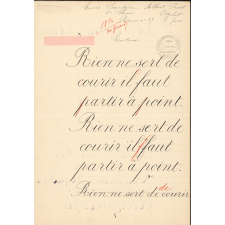 Rien ne sert de
courir il faut
partir à point.
Rien ne sert de
courir il faut
partir à point.
Rien ne sert de de courir